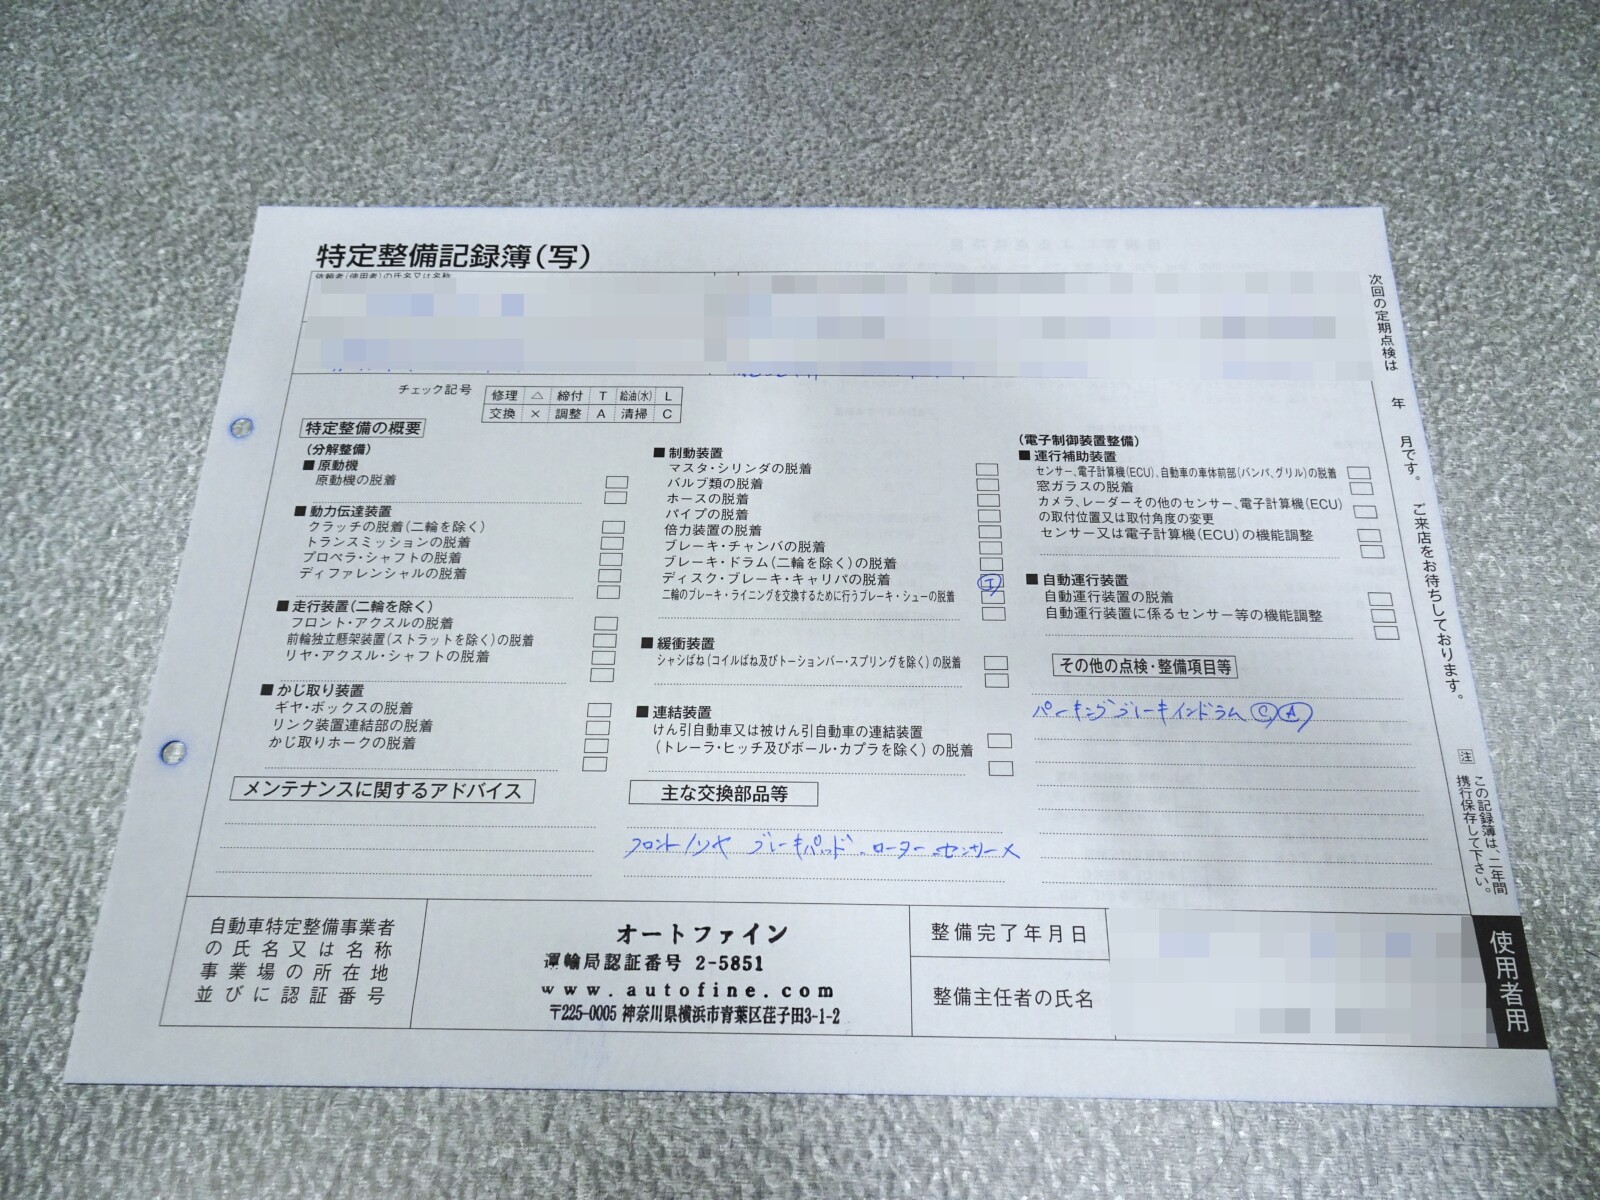 特定整備記録簿(写)
依頼者(使用者)の氏名又は名称
チェック記号
修理 △ 締付 T 給油(水) L
交換 × 調整 A 清掃 C
特定整備の概要
(分解整備)
■ 原動機
原動機の脱着
■ 動力伝達装置
クラッチの脱着(二輪を除く)
トランスミッションの脱着
プロペラ・シャフトの脱着
ディファレンシャルの脱着
■ 走行装置(二輪を除く)
フロント・アクスルの脱着
前輪独立懸架装置(ストラットを除く)の脱着
リヤ・アクスル・シャフトの脱着
■ かじ取り装置
ギヤ・ボックスの脱着
リンク装置連結部の脱着
かじ取りホークの脱着
メンテナンスに関するアドバイス
■ 制動装置
マスタ・シリンダの脱着
バルブ類の脱着
ホースの脱着
パイプの脱着
倍力装置の脱着
ブレーキ・チャンバの脱着
ブレーキ・ドラム(二輪を除く)の脱着
ディスク・ブレーキ・キャリパの脱着
二輪のブレーキ・ライニングを交換するために行うブレーキ・シューの脱着
■ 緩衝装置
シャシばね(コイルばね及びトーションバー・スプリングを除く)の脱着
■ 連結装置
けん引自動車又は被けん引自動車の連結装置
(トレーラ・ヒッチ及びボール・カプラを除く)の脱着
主な交換部品等
フロント/リヤ ブレーキパッド.ローター.センサー×
(電子制御装置整備)
■ 運行補助装置
センサー、電子計算機(ECU)、自動車の車体前部(バンパ、グリル)の脱着
窓ガラスの脱着
カメラ、レーダーその他のセンサー、電子計算機(ECU)
の取付位置又は取付角度の変更
センサー又は電子計算機(ECU)の機能調整
■ 自動運行装置
自動運行装置の脱着
自動運行装置に係るセンサー等の機能調整
その他の点検・整備項目等
パーキングブレーキインドラム Ⓒ Ⓐ
次回の定期点検は 年 月です。 ご来店をお待ちしております。
注 この記録簿は、二年間
携行保存して下さい。
自動車特定整備事業者
の氏名又は名称
事業場の所在地
並びに認証番号
オートファイン
運輸局認証番号 2-5851
www.autofine.com
〒225-0005 神奈川県横浜市青葉区荏子田3-1-2
整備完了年月日
整備主任者の氏名
使用者用